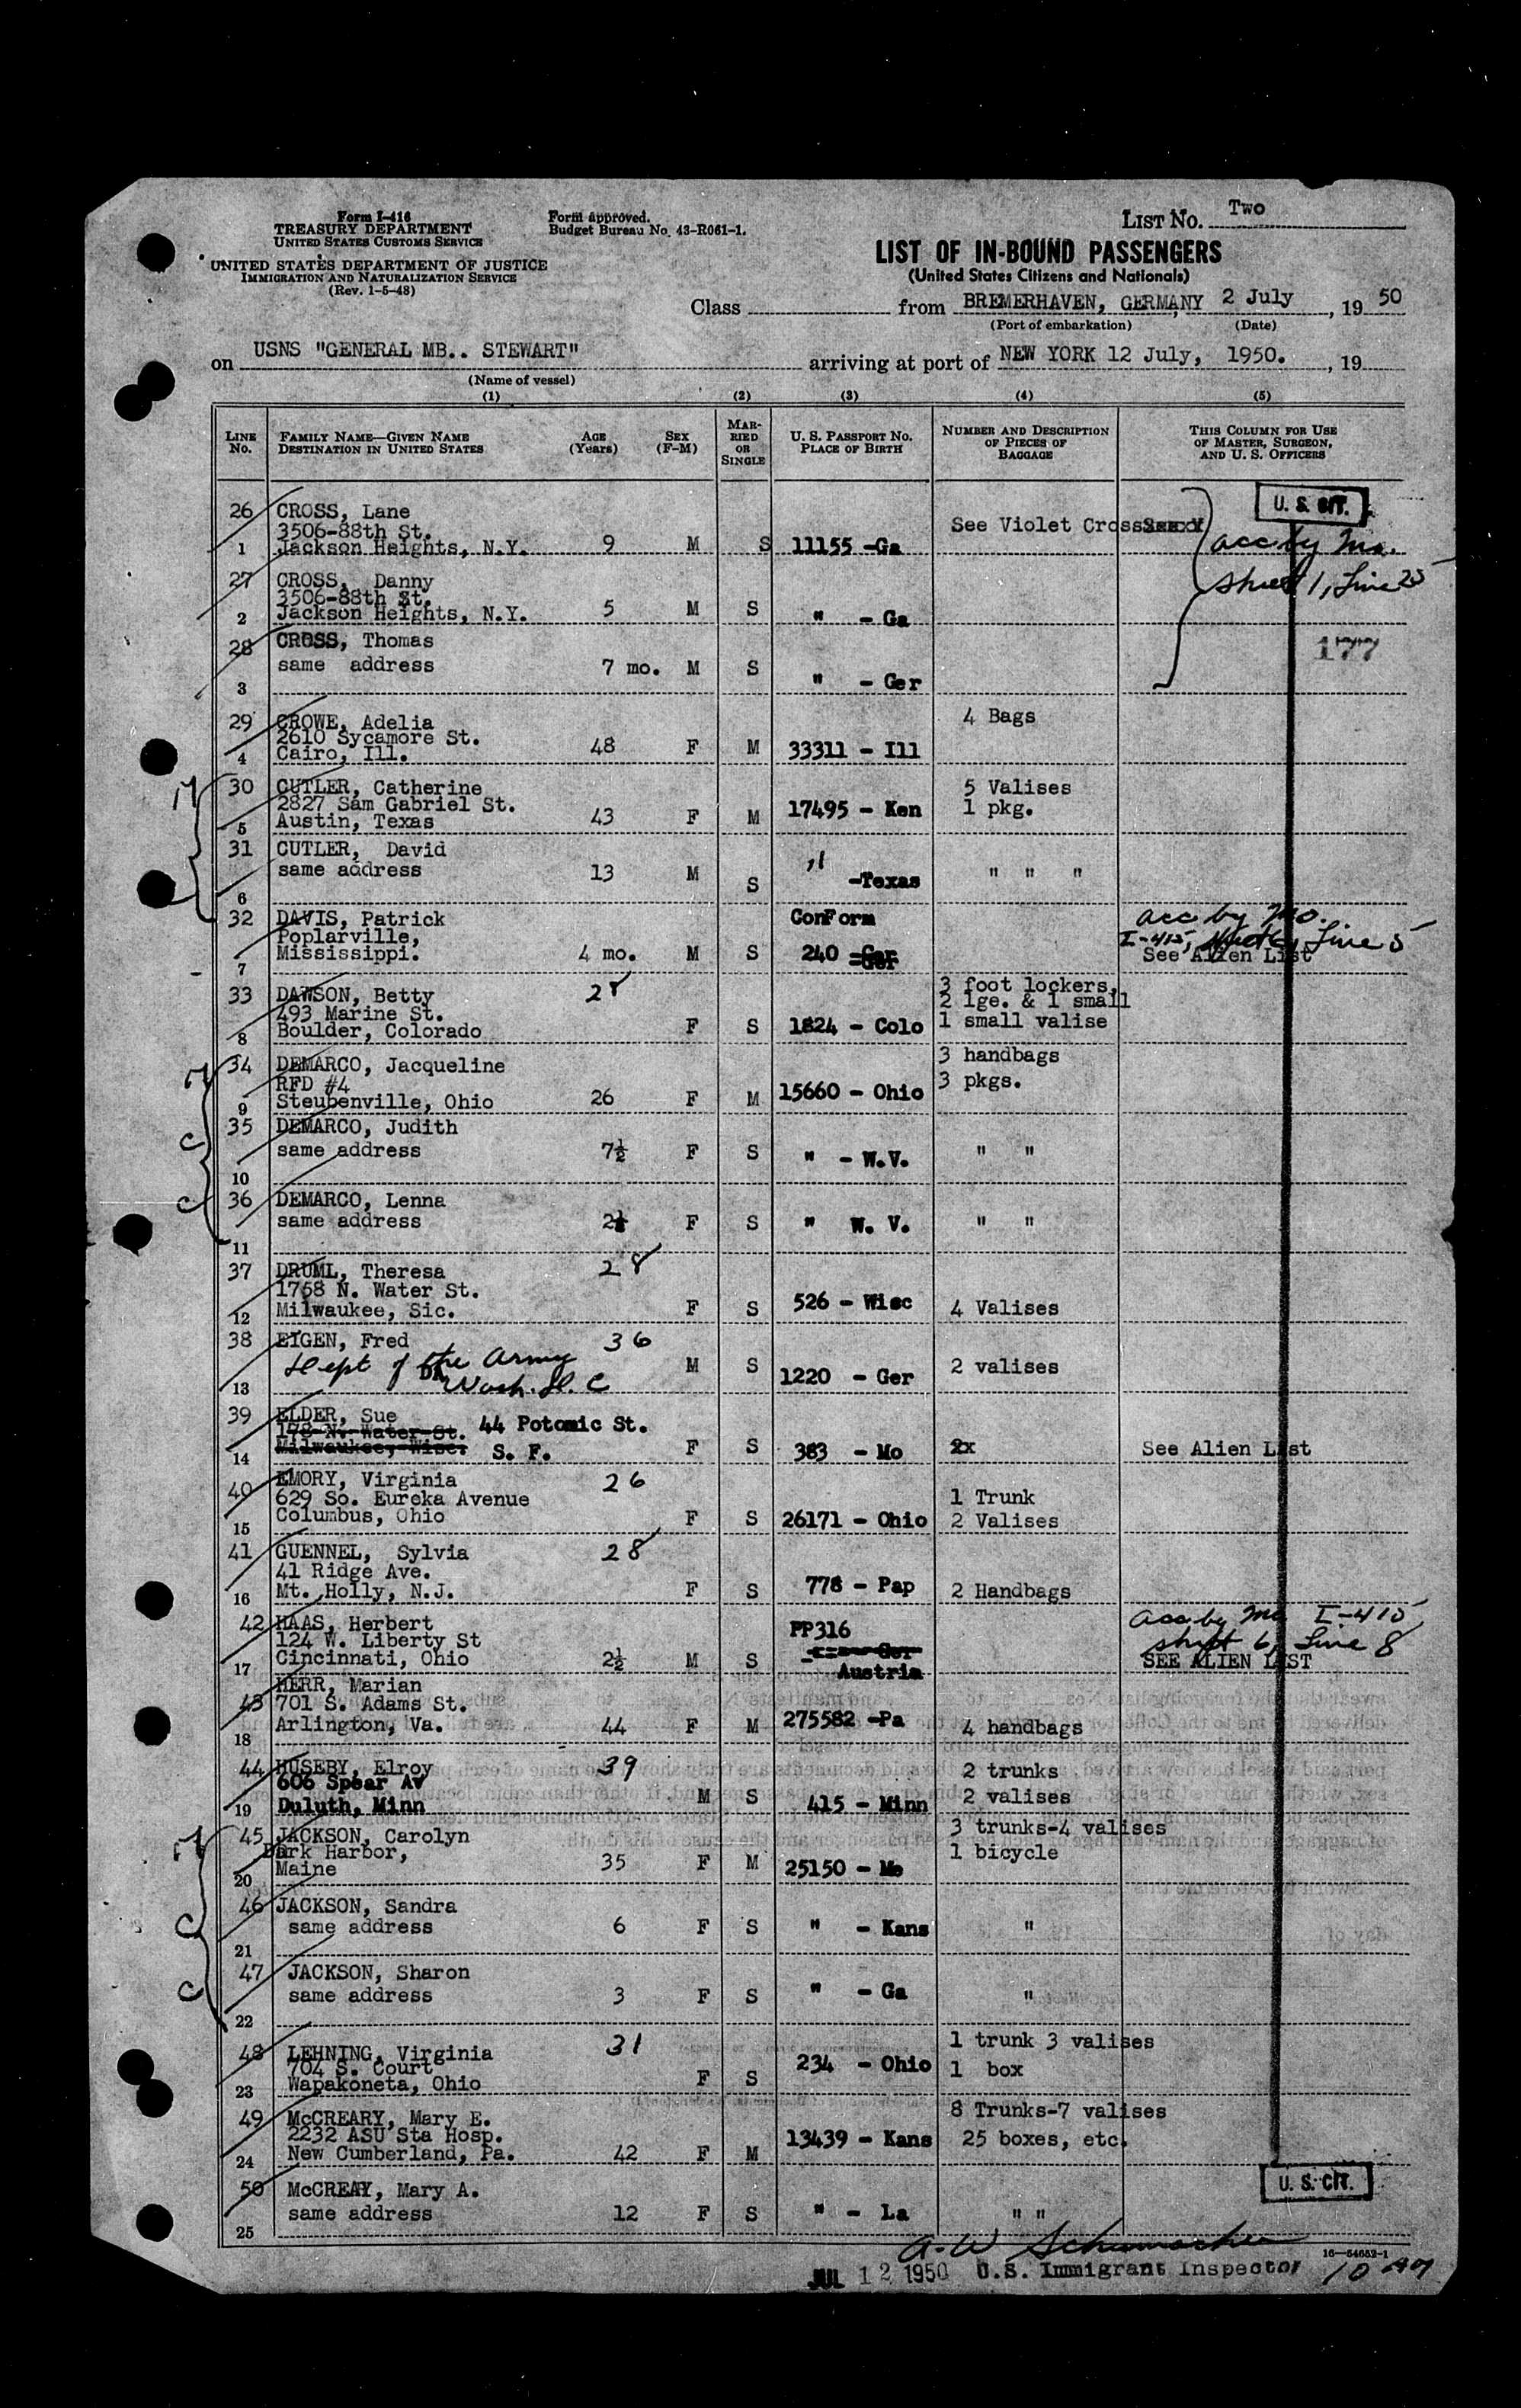 Form I-416
TREASURY DEPARTMENT
UNITED STATES CUSTOMS SERVICE
UNITED STATES DEPARTMENT OF JUSTICE
IMMIGRATION AND NATURALIZATION SERVICE
(Rev. 1-5-48)
Form approved.
Budget Bureau No. 43-R061-1.
LIST No. Two
LIST OF IN-BOUND PASSENGERS
(United States Citizens and Nationals)
Class from BREMERHAVEN, GERMANY, 2 July, 19 50
(Port of embarkation) (Date)
on USNS "GENERAL MB.. STEWART" arriving at port of NEW YORK 12 July, 1950. , 19
(Name of vessel)
(1) (2) (3) (4) (5)
LINE No. FAMILY NAME—GIVEN NAME DESTINATION IN UNITED STATES AGE (Years) SEX (F-M) MARRIED OR SINGLE U. S. PASSPORT No. PLACE OF BIRTH NUMBER AND DESCRIPTION OF PIECES OF BAGGAGE THIS COLUMN FOR USE OF MASTER, SURGEON, AND U. S. OFFICERS
U. S. CIT.
26 CROSS, Lane
3506-88th St. See Violet Cross
1 Jackson Heights, N.Y. 9 M S 11155 -Ga acc by Mo.
27 CROSS, Danny sheet 1, Line 25
3506-88th St.
2 Jackson Heights, N.Y. 5 M S " - Ga
28 CROSS, Thomas 177
same address 7 mo. M S
3 " - Ger
29 CROWE, Adelia 4 Bags
2610 Sycamore St.
4 Cairo, Ill. 48 F M 33311 - Ill
30 CUTLER, Catherine 5 Valises
2827 Sam Gabriel St. 1 pkg.
5 Austin, Texas 43 F M 17495 - Ken
31 CUTLER, David
same address 13 M S " -Texas " " "
6
32 DAVIS, Patrick ConForm acc by Mo.
Poplarville, I-415, Line 5
7 Mississippi. 4 mo. M S 240 -Ger See Alien List
33 DAWSON, Betty 28 3 foot lockers,
493 Marine St. 2 lge. & 1 small
8 Boulder, Colorado F S 1824 - Colo 1 small valise
34 DEMARCO, Jacqueline 3 handbags
RFD #4 3 pkgs.
9 Steubenville, Ohio 26 F M 15660 - Ohio
35 DEMARCO, Judith
same address 7½ F S " - W.V. " "
10
36 DEMARCO, Lenna
same address 2½ F S " W. V. " "
11
37 DRUML, Theresa 28
1758 N. Water St.
12 Milwaukee, Sic. F S 526 - Wisc 4 Valises
38 EIGEN, Fred 36
Dept of the Army M S 1220 - Ger 2 valises
13 Wash. D. C
39 ELDER, Sue 44 Potomic St.
178 N. Water St.
14 Milwaukee, Wisc. S. F. F S 383 - Mo 2x See Alien List
40 EMORY, Virginia 26
629 So. Eureka Avenue 1 Trunk
15 Columbus, Ohio F S 26171 - Ohio 2 Valises
41 GUENNEL, Sylvia 28
41 Ridge Ave.
16 Mt. Holly, N.J. F S 778 - Pap 2 Handbags
42 HAAS, Herbert PP316 acc by Mo I-415
124 W. Liberty St sheet 6, Line 8
17 Cincinnati, Ohio 2½ M S Ger Austria SEE ALIEN LIST
HERR, Marian
43 701 S. Adams St.
18 Arlington, Va. 44 F M 275582 -Pa 4 handbags
44 HUSEBY, Elroy 39 2 trunks
606 Spear Av 2 valises
19 Duluth, Minn M S 415 - Minn
45 JACKSON, Carolyn 3 trunks-4 valises
Dark Harbor, 1 bicycle
20 Maine 35 F M 25150 - Me
46 JACKSON, Sandra
same address 6 F S " - Kans "
21
47 JACKSON, Sharon
same address 3 F S " - Ga "
22
48 LEHNING, Virginia 31 1 trunk 3 valises
704 S. Court 234 - Ohio 1 box
23 Wapakoneta, Ohio F S
49 McCREARY, Mary E. 8 Trunks-7 valises
2232 ASU Sta Hosp. 13439 - Kans 25 boxes, etc.
24 New Cumberland, Pa. 42 F M
50 McCREAY, Mary A. U. S. CIT.
same address 12 F S " - La " "
25
A. W Schumacher
16-54652-1
JUL 12 1950 U.S. Immigrant Inspector